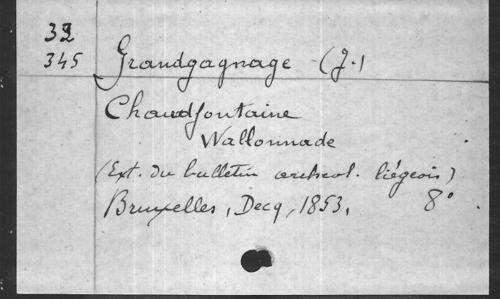 32
345 Grandgagnage (J.)
Chaudfontaine
Wallonnade
(Ext. du bulletin archeol. liégeois)
Bruxelles, Decq, 1853, 8°